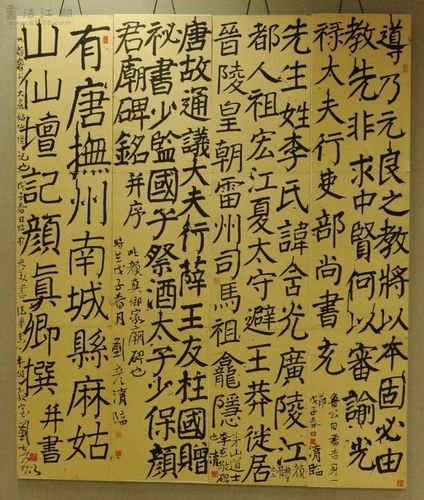 導乃元良之教將以本固必由
教先非求中賢何以審諭光
祿大夫行吏部尚書充
魯公自書告身一
節戊子春日 清臨
先生姓李氏諱含光廣陵江
都人祖宏江夏太守避王莽徙居
晉陵皇朝雷州司馬祖龕隱
茅山道士
唐故通議大夫行薛王友柱國贈
祕書少監國子祭酒太子少保顏
君廟碑銘并序
此顏真卿家廟碑也
時在戊子春月 劉彥清臨
有唐撫州南城縣麻姑
山仙壇記顏真卿撰并書